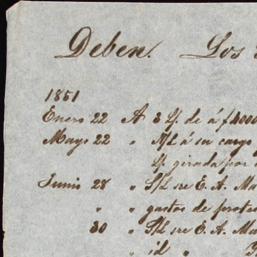 Deben. Los
1851
Enero 22 A 3 Lf. de á f 4000
Mayo 22 " S/L á su cargo
Lf. girada por
Junio 28 " S/L re E. A. Ma
" " gastos de protes
30 " S/L re E. A. Ma
" id